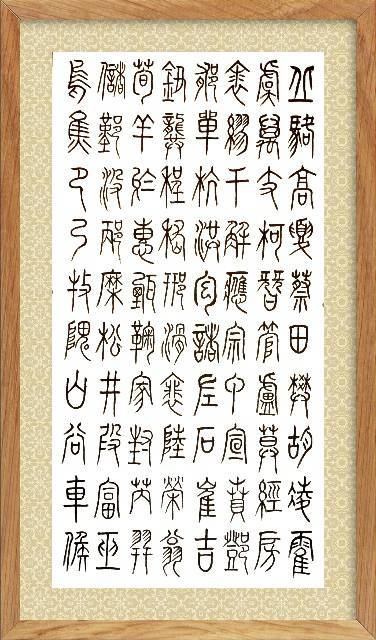 丘駱高夏蔡田樊胡凌霍
虞萬支柯昝管盧莫經房
裘繆干解應宗丁宣賁鄧
郁單杭洪包諸左石崔吉
鈕龔程嵇邢滑裴陸榮翁
荀羊於惠甄麴家封芮羿
儲靳汲邴糜松井段富巫
烏焦巴弓牧隗山谷車侯